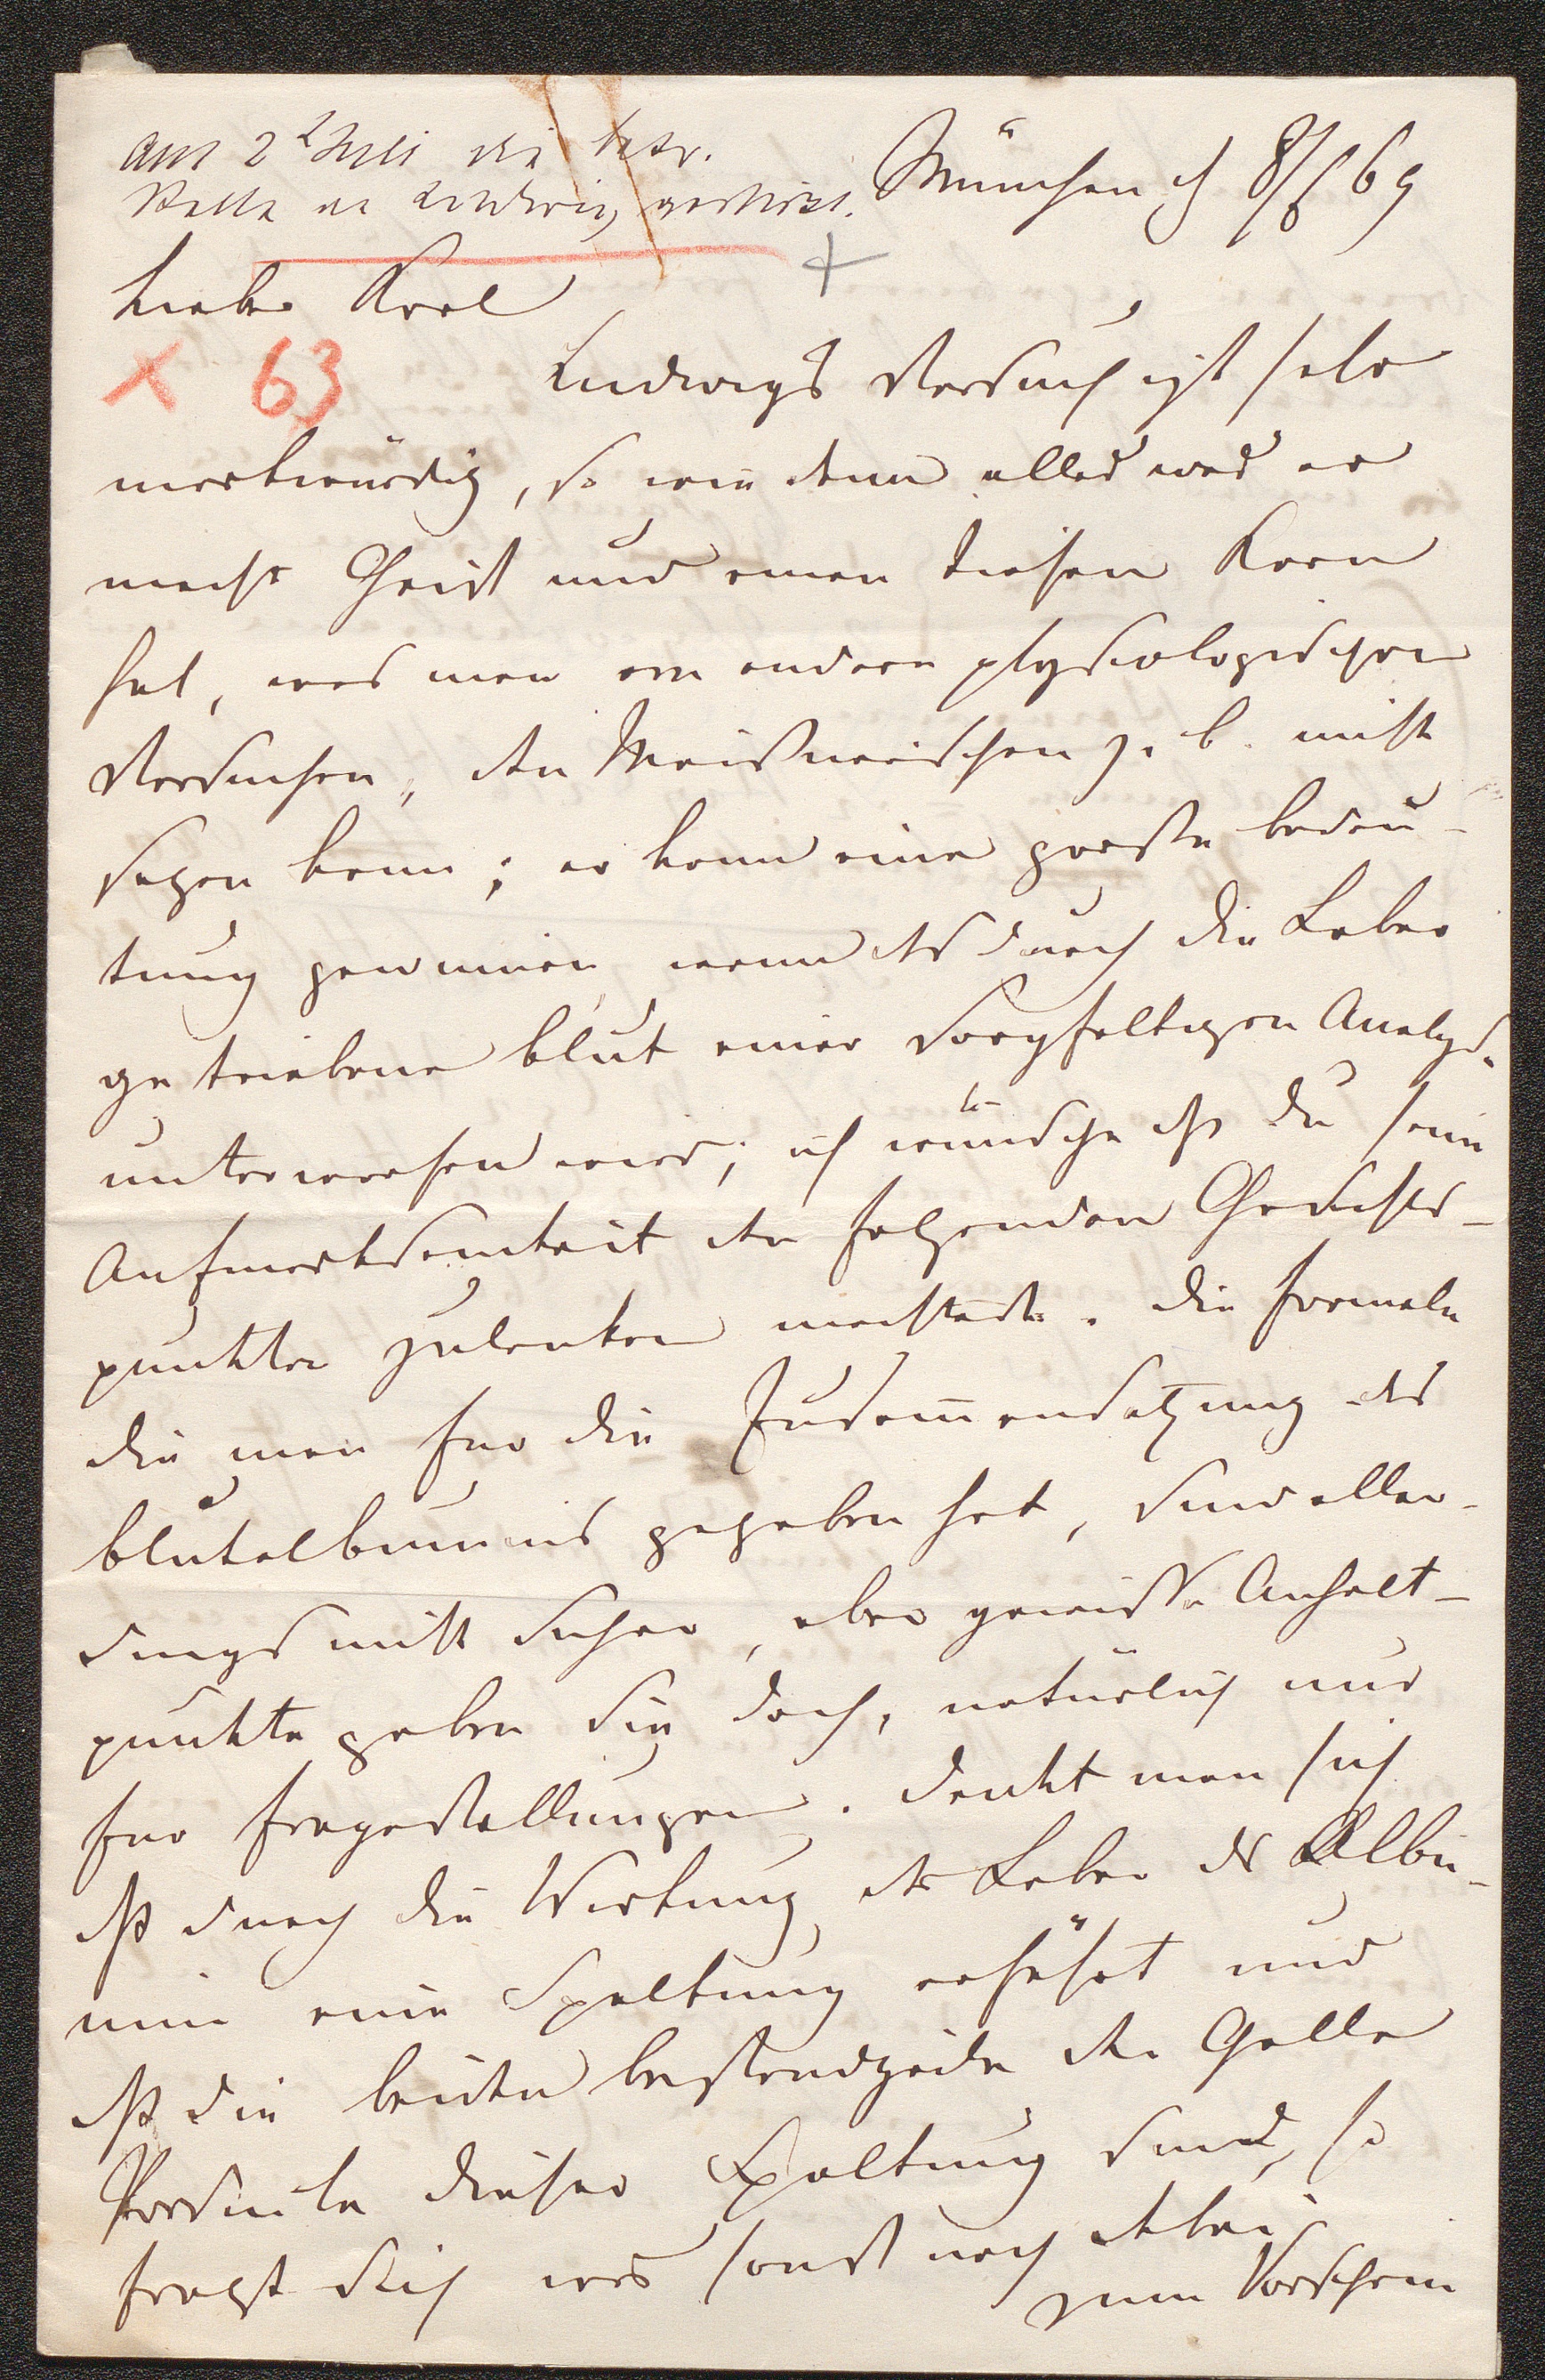 Am 2 Juli die betr.
Stelle an Ludwig geschickt.
München d 8/6 69
Lieber Karl
× 63
Ludwigs Versuch ist sehr
merkwürdig, so wie denn alles was er
macht Geist und einen tiefen Kern
hat, was man von andern physiologischen
Versuchen, den Meissnerischen z. b. nicht
sagen kann; er kann eine große bedeu-
tung gewinnen wenn das durch die Leber
getriebene blut einer sorgfaltigen Analyse
unterworfen wird; ich wünsche daß du seine
Aufmerksamkeit den folgenden Gesichts-
punkten zulenken mochtest. Die formeln
die man fur die Zusammensetzung des
blutalbumins gegeben hat, sind aller-
dings nicht sicher, aber gewisse Anhalt-
punkte geben sie doch, natürlich nur
fur fragestellungen. denkt man sich
daß durch die Wirkung der Leber das Albu-
min eine Spaltung erfährt und
daß die beiden bestandtheile der Galle
Producte dieser Spaltung sind, so
fragt sich was sonst noch dabei
zum Vorschein